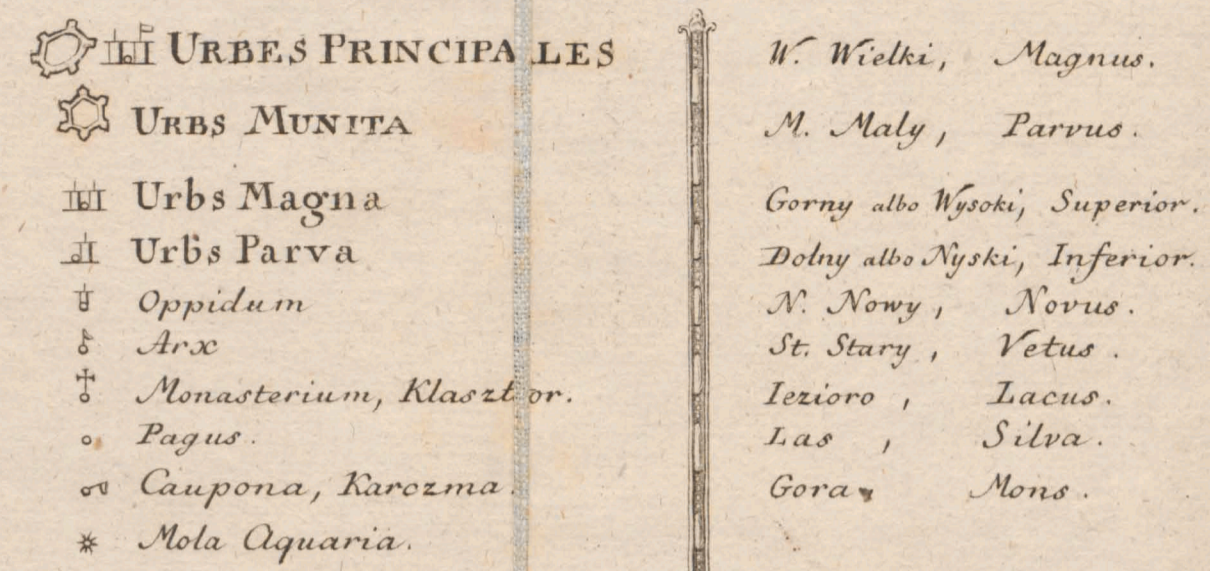 URBES PRINCIPALES
URBS MUNITA
Urbs Magna
Urbs Parva
Oppidum
Arx
Monasterium, Klasztor.
Pagus.
Caupona, Karczma.
Mola Aquaria.
W. Wielki, Magnus.
M. Maly, Parvus.
Gorny albo Wysoki, Superior.
Dolny albo Nyski, Inferior.
N. Nowy, Novus.
St. Stary, Vetus.
Iezioro, Lacus.
Las, Silva.
Gora, Mons.